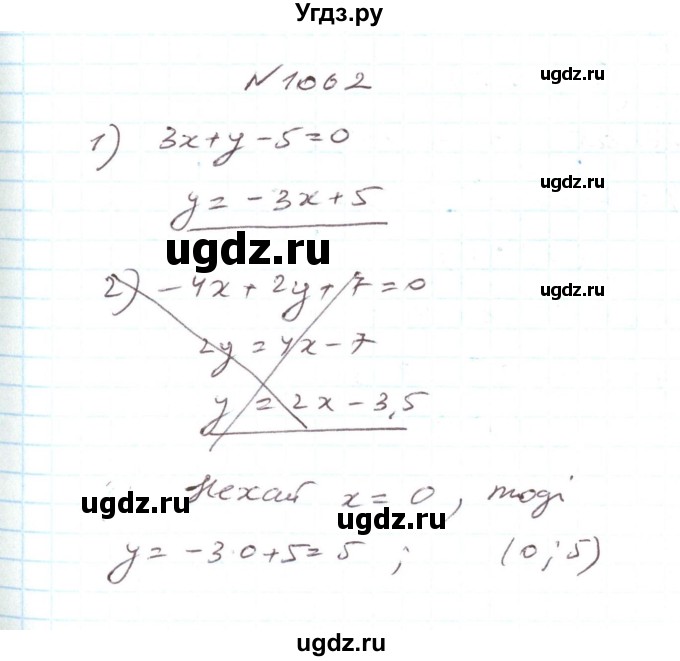 Угдз.ру
ugdz.ru
N 1062
1) 3x+y-5=0
ugdz.ru
y = -3x+5
ugdz.ru
2) -4x+2y+7=0
ugdz.ru
2y = 4x-7
y = 2x-3,5
Нехай x=0, тоді
ugdz.ru
ugdz.ru
y = -3·0+5=5; (0;5)
ugdz.ru